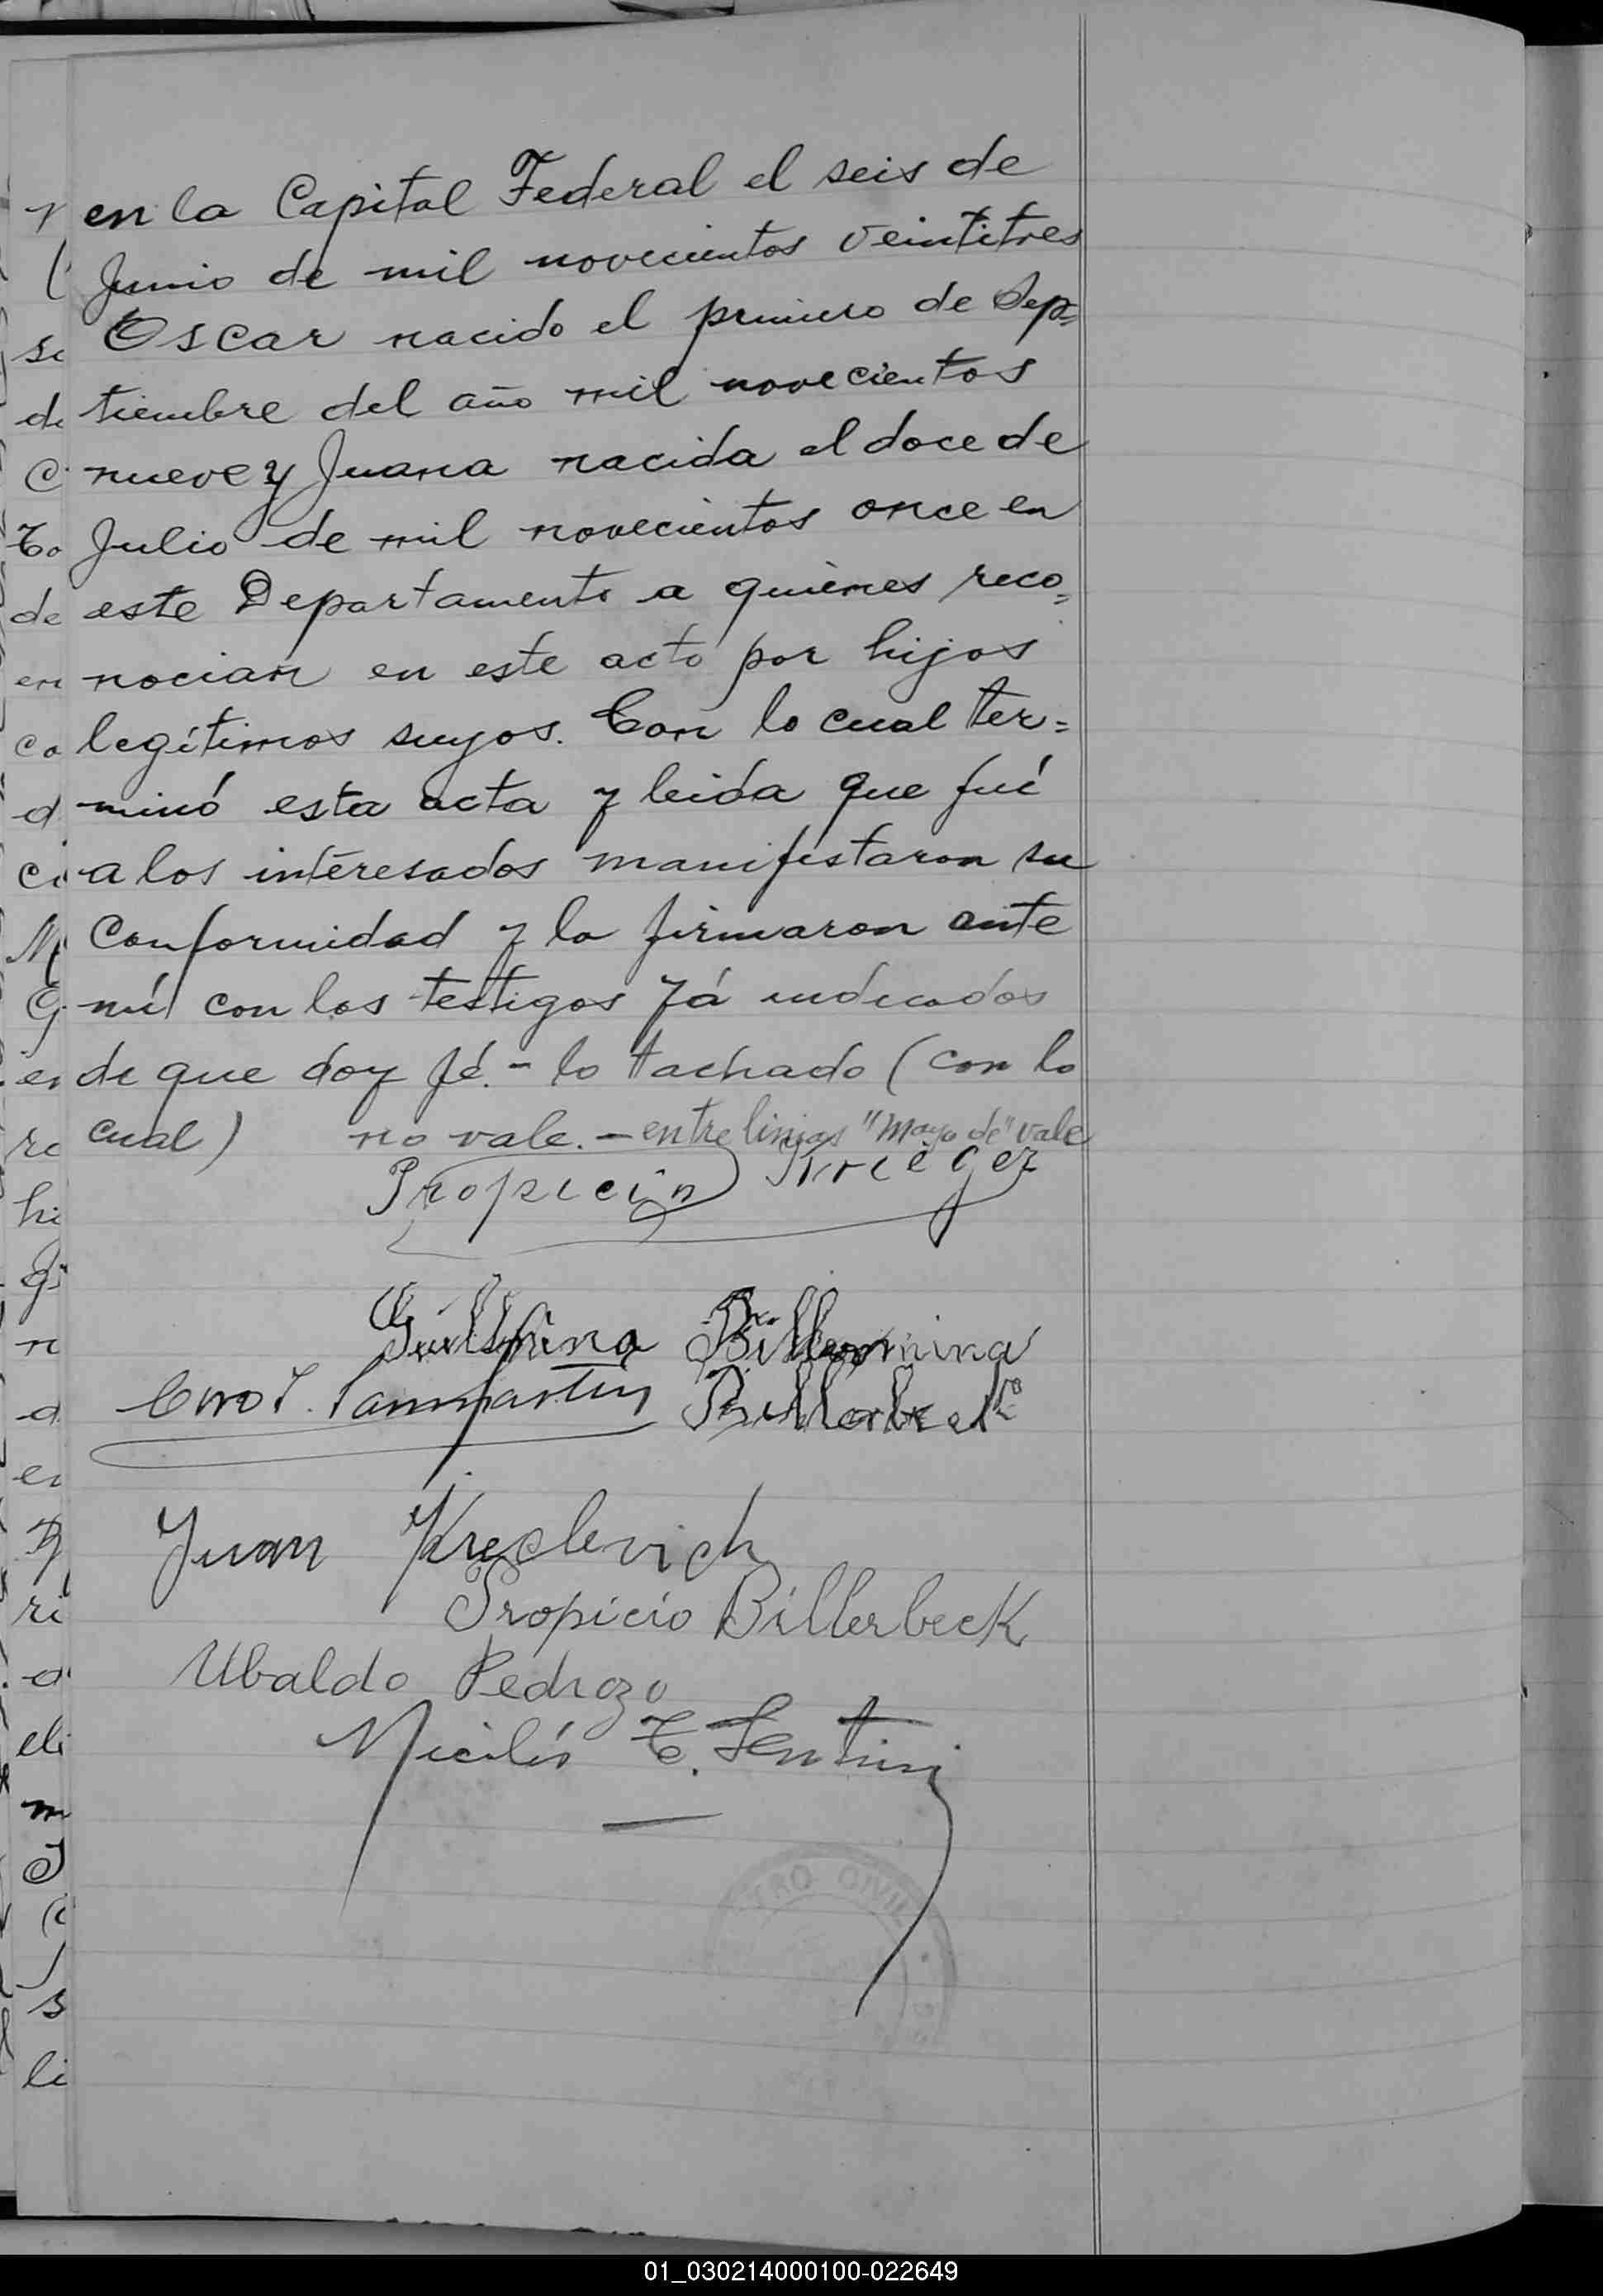 en la Capital Federal el seis de
Junio de mil novecientos veintitres
Oscar nacido el primero de Sep=
tiembre del año mil novecientos
nueve y Juana nacida el doce de
Julio de mil novecientos once en
este Departamento a quienes reco=
nocian en este acto por hijos
legítimos suyos. Con lo cual ter=
minó esta acta y leida que fué
a los interesados manifestaron su
Conformidad y la firmaron ante
mí con los testigos yá indicados
de que doy fé. - lo tachado (con lo
cual) no vale. - entre linias "Mayo de" vale
Propicio
Guillermina
Billerbeck
Juan Kreplevich
Propicio Billerbeck
Ubaldo Pedrozo
Nicolás C.
REGISTRO CIVIL
01_030214000100-022649